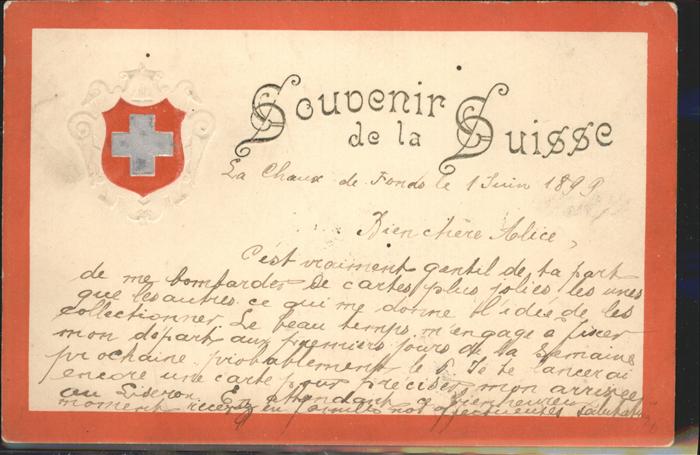 Souvenir
de la Suisse
La Chaux-de-Fonds le 1 Juin 1899
Bien chère Alice,
C'est vraiment gentil de ta part
de me bombarder de cartes plus jolies les unes
que les autres ce qui me donne l'idée de les
collectionner. Le beau temps m'engage à fixer
mon départ aux premiers jours de la semaine
prochaine probablement le 6. Je te lancerai
encore une carte pour préciser mon arrivée
au Liseron. En attendant ce bienheureux
moment recevez en famille nos affectueuses salutations